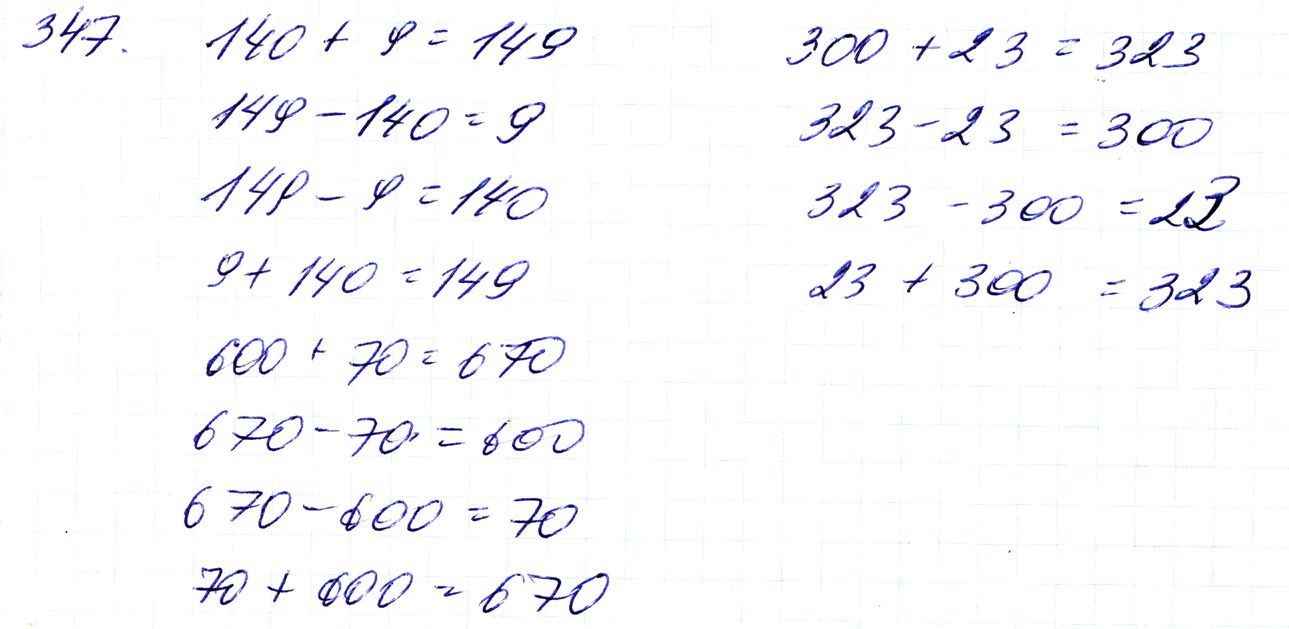 347.
140 + 9 = 149
149 - 140 = 9
149 - 9 = 140
9 + 140 = 149
600 + 70 = 670
670 - 70 = 600
670 - 600 = 70
70 + 600 = 670
300 + 23 = 323
323 - 23 = 300
323 - 300 = 23
23 + 300 = 323